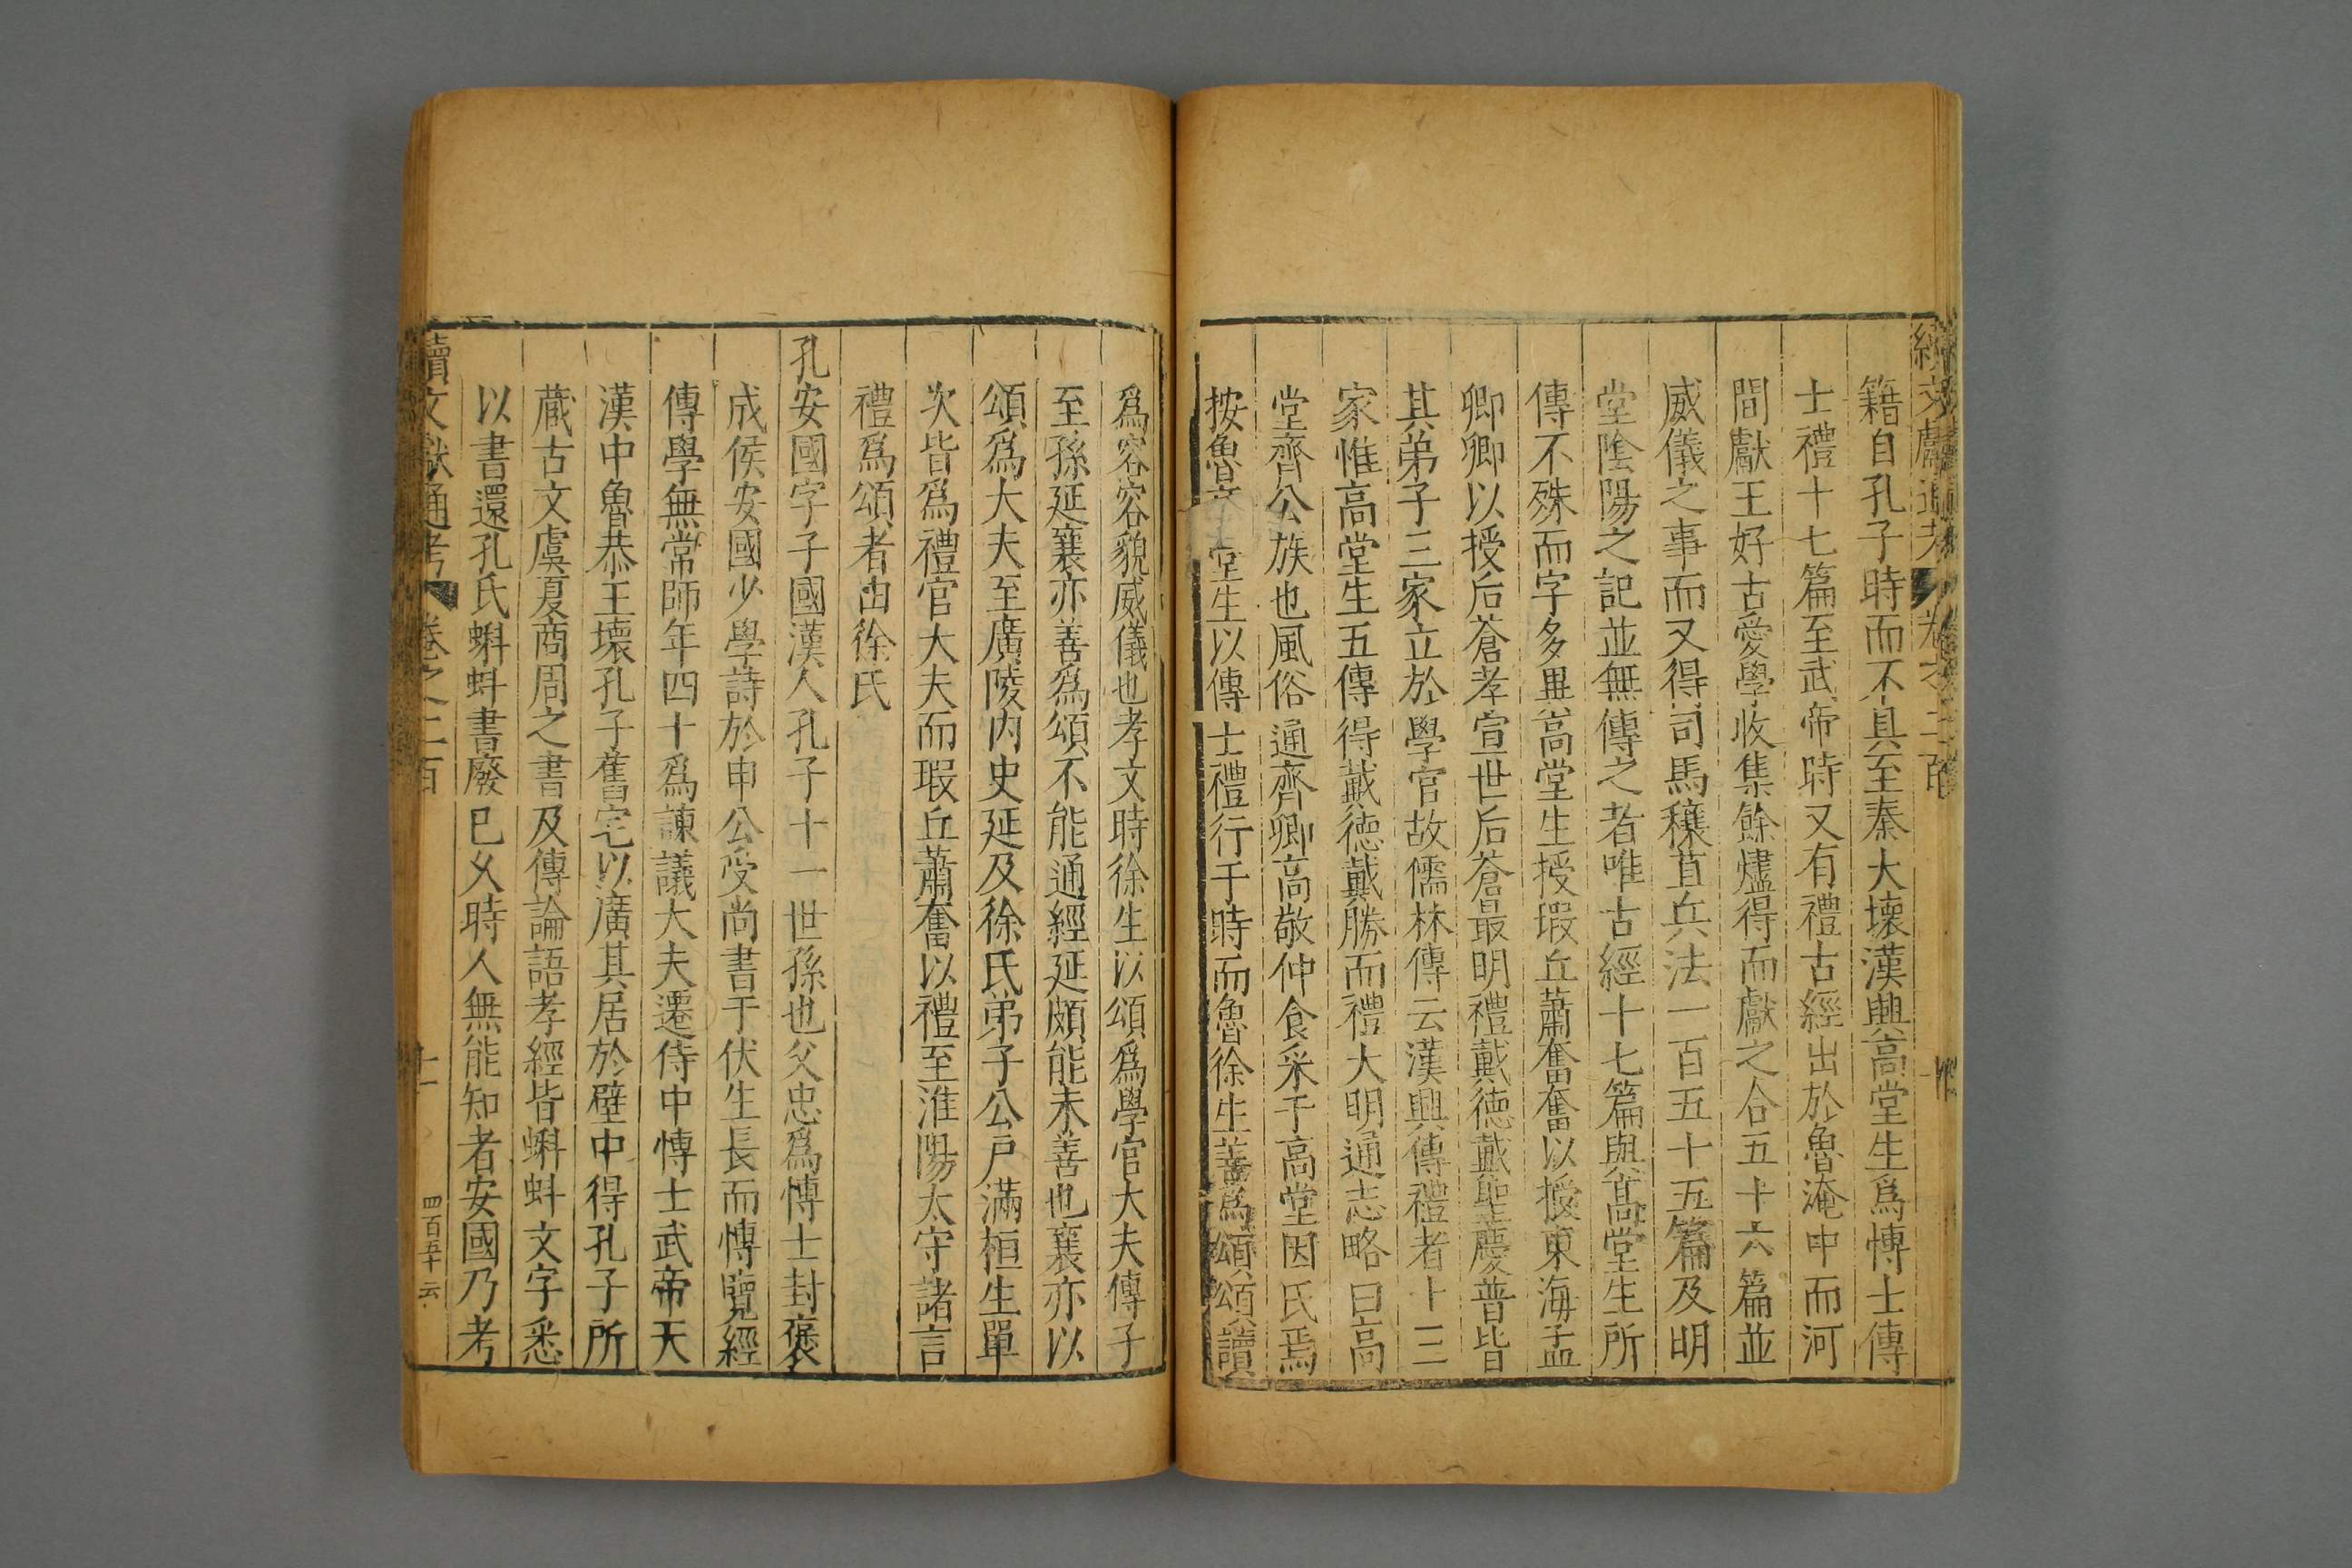 續文獻通考 卷之二百
籍自孔子時而不具至秦大壞漢興高堂生爲博士傳
士禮十七篇至武帝時又有禮古經出於魯淹中而河
間獻王好古愛學收集餘燼得而獻之合五十六篇並
威儀之事而又得司馬穰苴兵法一百五十五篇及明
堂陰陽之記並無傳之者唯古經十七篇與高堂生所
傳不殊而字多異高堂生授瑕丘蕭奮奮以授東海孟
卿卿以授后蒼孝宣世后蒼最明禮戴德戴聖慶普皆
其弟子三家立於學官故儒林傳云漢興傳禮者十三
家惟高堂生五傳得戴德戴勝而禮大明通志略曰高
堂齊公族也風俗通齊卿高敬仲食采于高堂因氏焉
按魯 堂生以傳士禮行于時而魯徐生善爲頌頌讀
爲容容貌威儀也孝文時徐生以頌爲學官大夫傳子
至孫延襄亦善爲頌不能通經延頗能未善也襄亦以
頌爲大夫至廣陵內史延及徐氏弟子公戶滿桓生單
次皆爲禮官大夫而瑕丘蕭奮以禮至淮陽太守諸言
禮爲頌者由徐氏
孔安國字子國漢人孔子十一世孫也父忠爲博士封褒
成侯安國少學詩於申公受尚書于伏生長而博覽經
傳學無常師年四十爲諫議大夫遷侍中博士武帝天
漢中魯恭王壞孔子舊宅以廣其居於壁中得孔子所
藏古文虞夏商周之書及傳論語孝經皆蝌蚪文字悉
以書還孔氏蝌蚪書廢已久時人無能知者安國乃考
續文獻通考 卷之二百 十一 四百五十 云